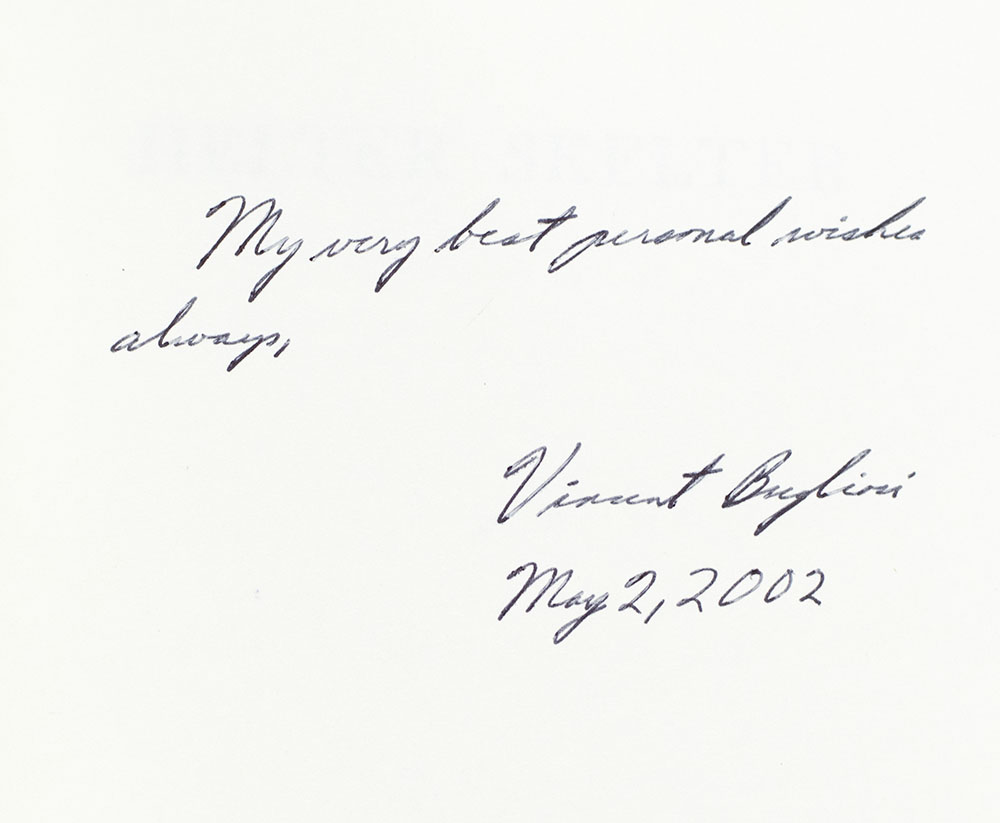 HELTER SKELTER
My very best personal wishes
always,
Vincent Bugliosi
May 2, 2002